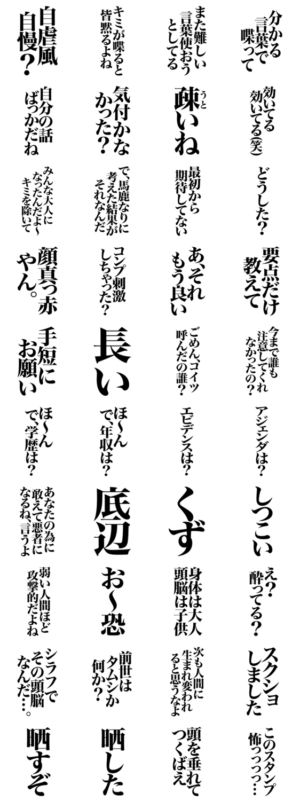 自虐風
自慢？
キミが喋ると
皆黙るよね
また難しい
言葉使おう
としてる
分かる
言葉で
喋って
自分の話
ばっかだね
気付かな
かった？
疎いね
うと
効いてる
効いてる(笑)
みんな大人に
なったんだよ〜
キミを除いて
で、馬鹿なりに
考えた結果が
それなんだ
最初から
期待してない
どうした？
顔真っ赤
やん。
コンプ刺激
しちゃった？
あ、それ
もう良い
要点だけ
教えて
手短に
お願い
長い
ごめん、コイツ
呼んだの誰？
今まで誰も
注意してくれ
なかったの？
ほ〜ん
で、学歴は？
ほ〜ん
で年収は？
エビデンスは？
アジェンダは？
あなたの為に
敢えて悪者に
なるね、言うよ
底辺
くず
しつこい
弱い人間ほど
攻撃的だよね
お〜恐
身体は大人
頭脳は子供
え？
酔ってる？
シラフで
その頭脳
なんだ…。
前世は
タムシか
何か？
次も人間に
生まれ変われ
ると思うなよ
スクショ
しました
晒すぞ
晒した
頭を垂れて
つくばえ
このスタンプ
怖っっっ…